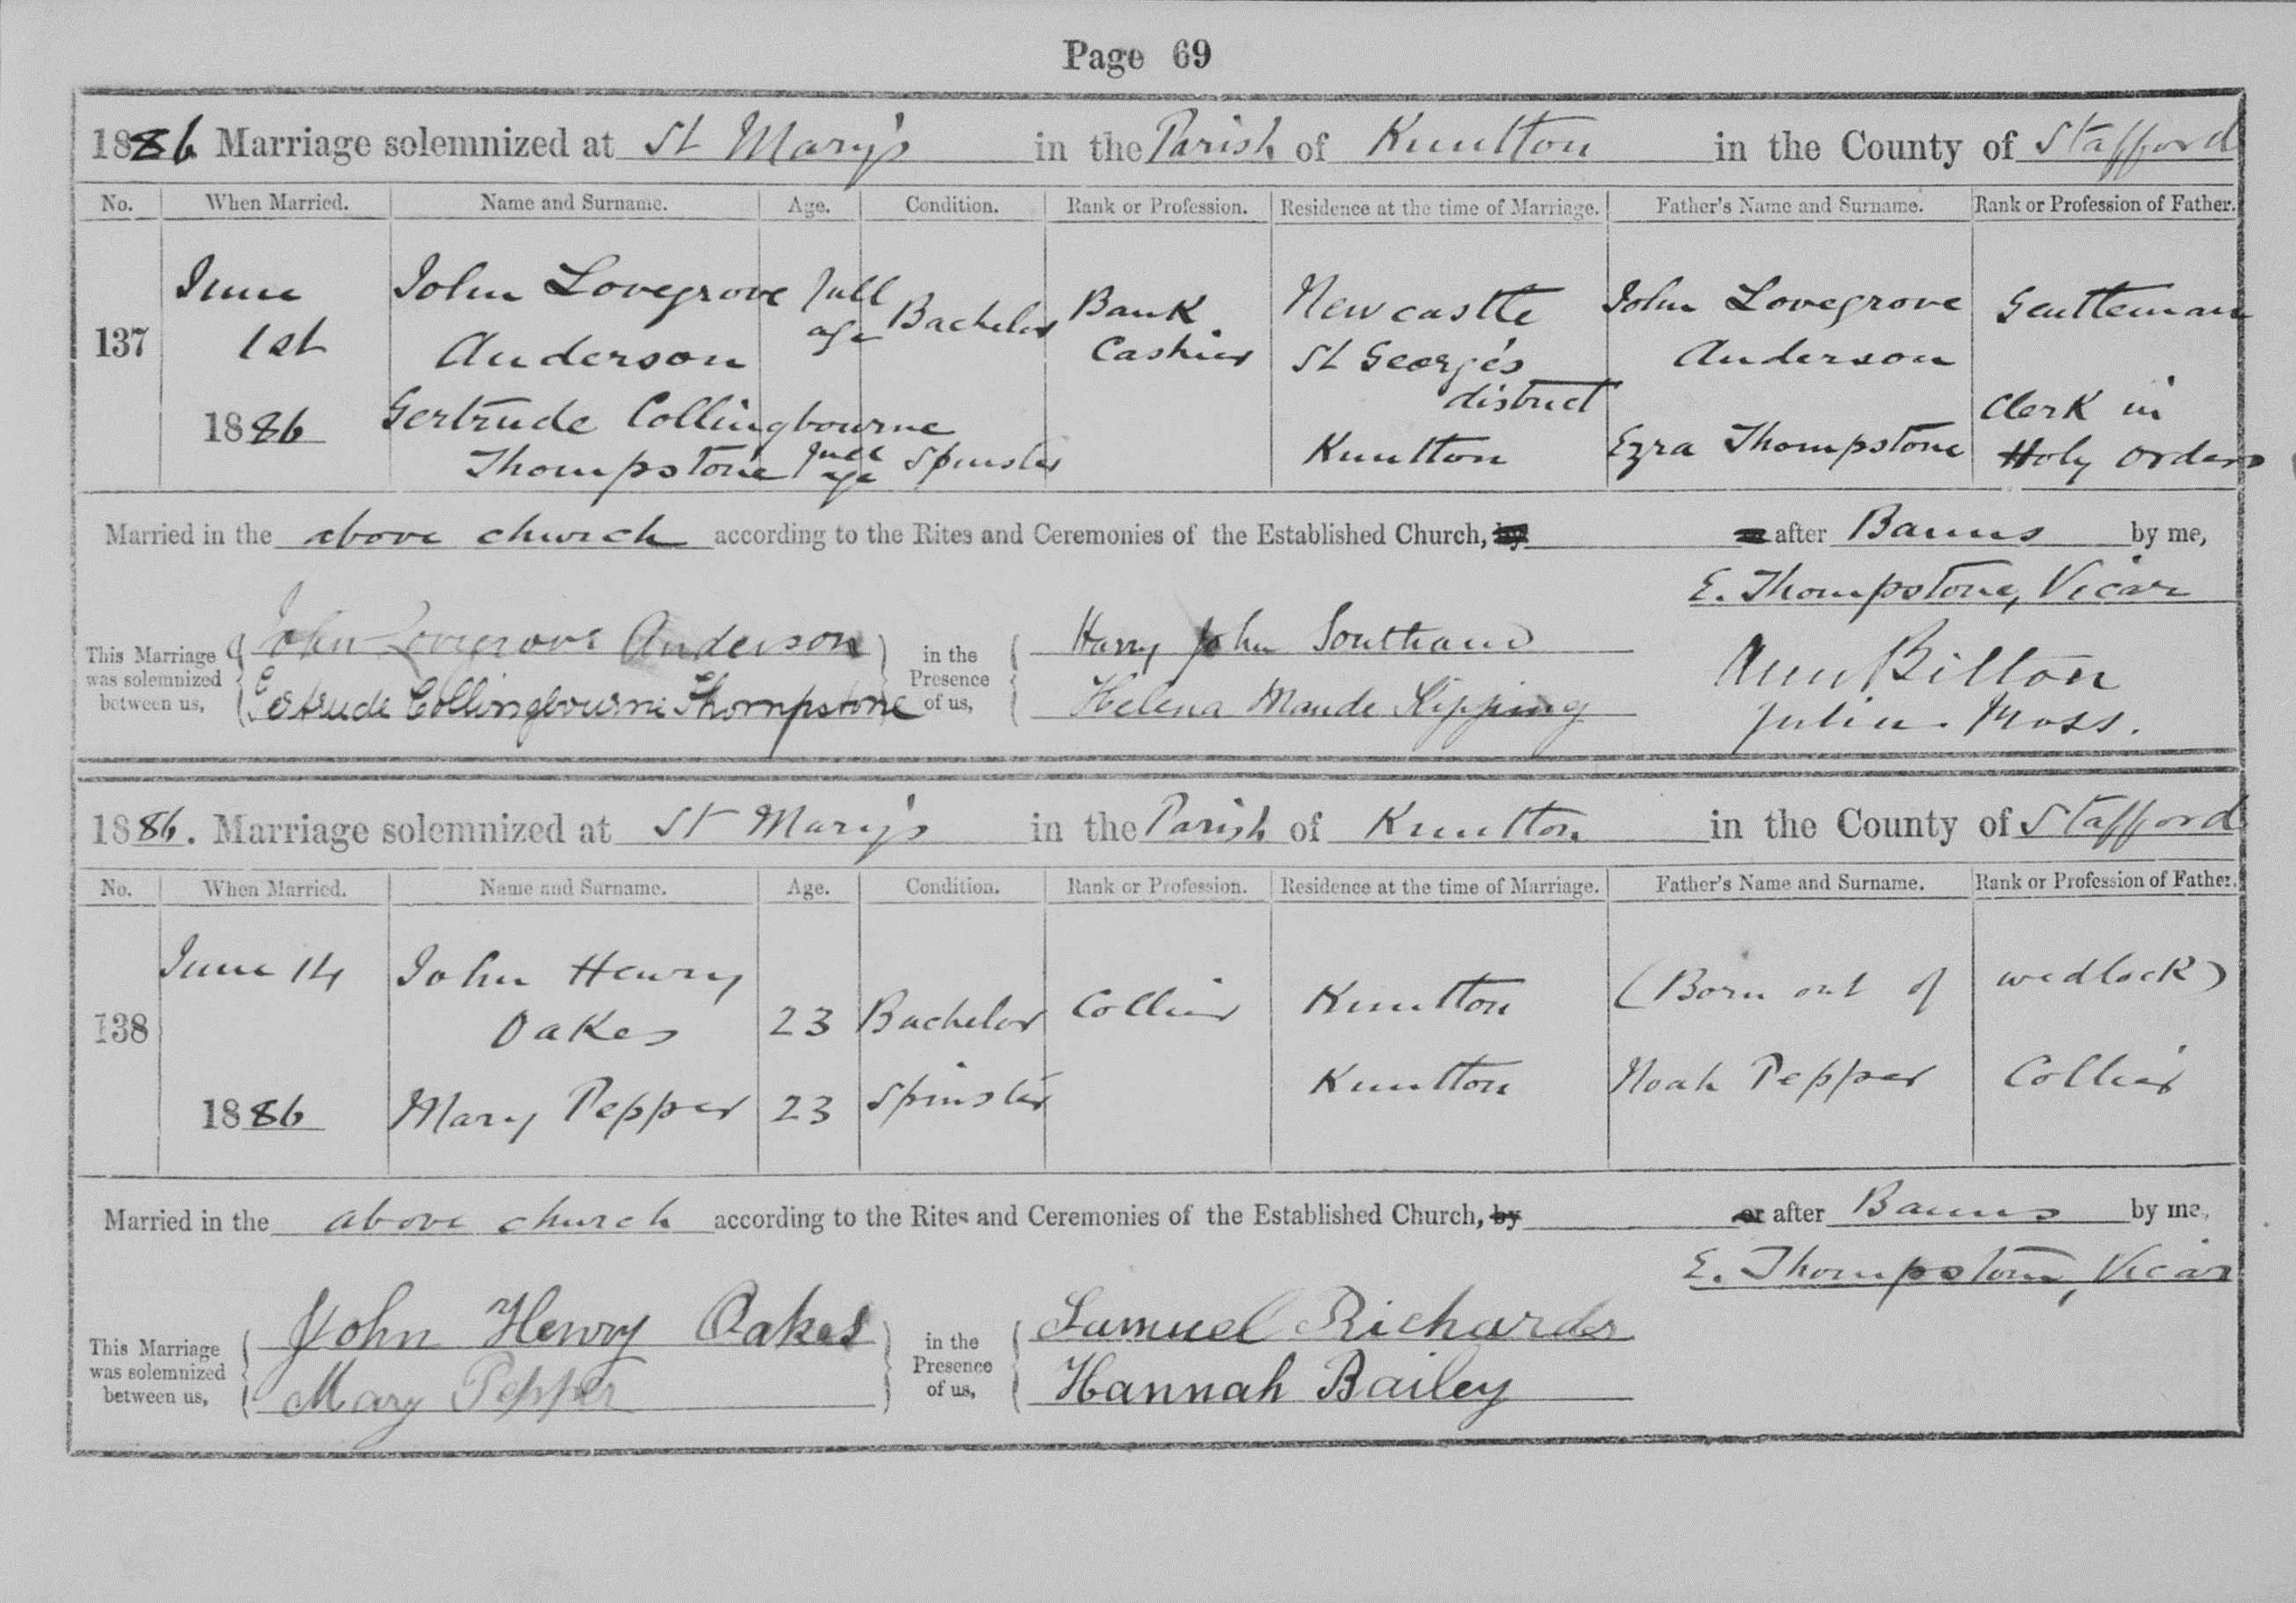 Page 69
1886. Marriage solemnized at St Mary's in the Parish of Knutton in the County of Stafford
No. When Married. Name and Surname. Age. Condition. Rank or Profession. Residence at the time of Marriage. Father's Name and Surname. Rank or Profession of Father.
137 June 1st 1886
John Lovegrove Anderson Full age Bachelor Bank Cashier Newcastle St George's district John Lovegrove Anderson Gentleman
Gertrude Collingbourne Thompstone Full age Spinster Knutton Ezra Thompstone Clerk in Holy Orders
Married in the above church according to the Rites and Ceremonies of the Established Church, by or after Banns by me,
E. Thompstone, Vicar
This Marriage was solemnized between us,
John Lovegrove Anderson
Gertrude Collingbourne Thompstone
in the Presence of us,
Harry John
Helena Maude Kipping
Bilton
Moss.
1886. Marriage solemnized at St Mary's in the Parish of Knutton in the County of Stafford
No. When Married. Name and Surname. Age. Condition. Rank or Profession. Residence at the time of Marriage. Father's Name and Surname. Rank or Profession of Father.
138 June 14 1886
John Henry Oakes 23 Bachelor Collier Knutton (Born out of wedlock)
Mary Pepper 23 Spinster Knutton Noah Pepper Collier
Married in the above church according to the Rites and Ceremonies of the Established Church, by or after Banns by me,
E. Thompstone, Vicar
This Marriage was solemnized between us,
John Henry Oakes
Mary Pepper
in the Presence of us,
Samuel Richards
Hannah Bailey